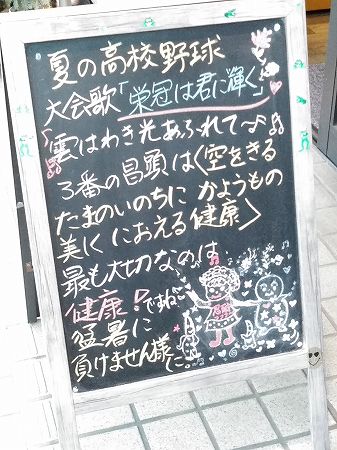 夏の高校野球
大会歌「栄冠は君に輝く」
「雲はわき光あふれて〜♪
3番の冒頭は〈空をきる
たまのいのちに かようもの
美しく におえる健康〉
最も大切なのは
健康!ですね〜
猛暑に
負けません様に。